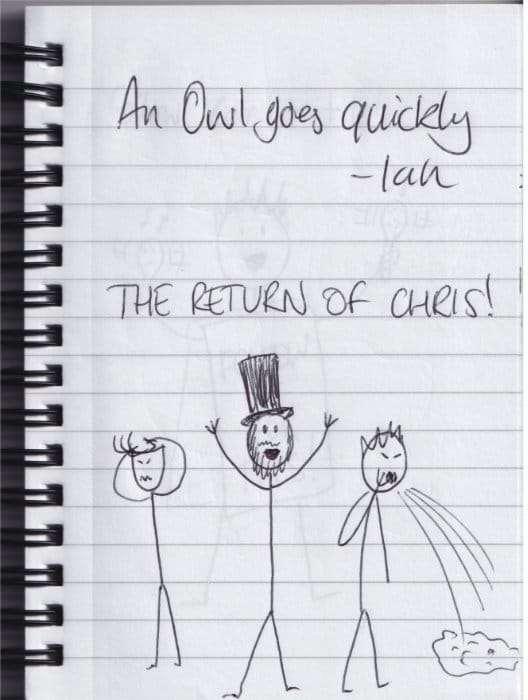 An Owl goes quickly
-Ian
THE RETURN OF CHRIS!